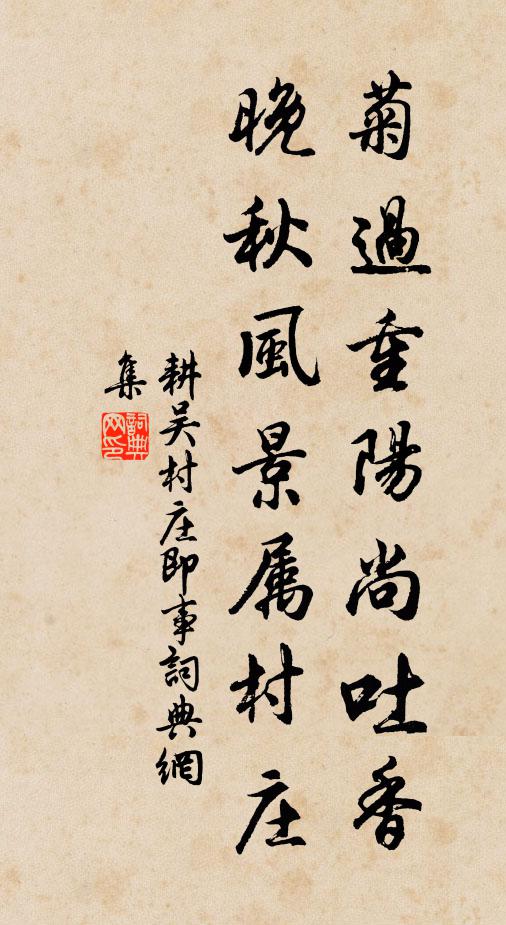 菊過重陽尚吐香
晚秋風景属村庄
耕吴村庄即事詞典網
集
詞典
网印